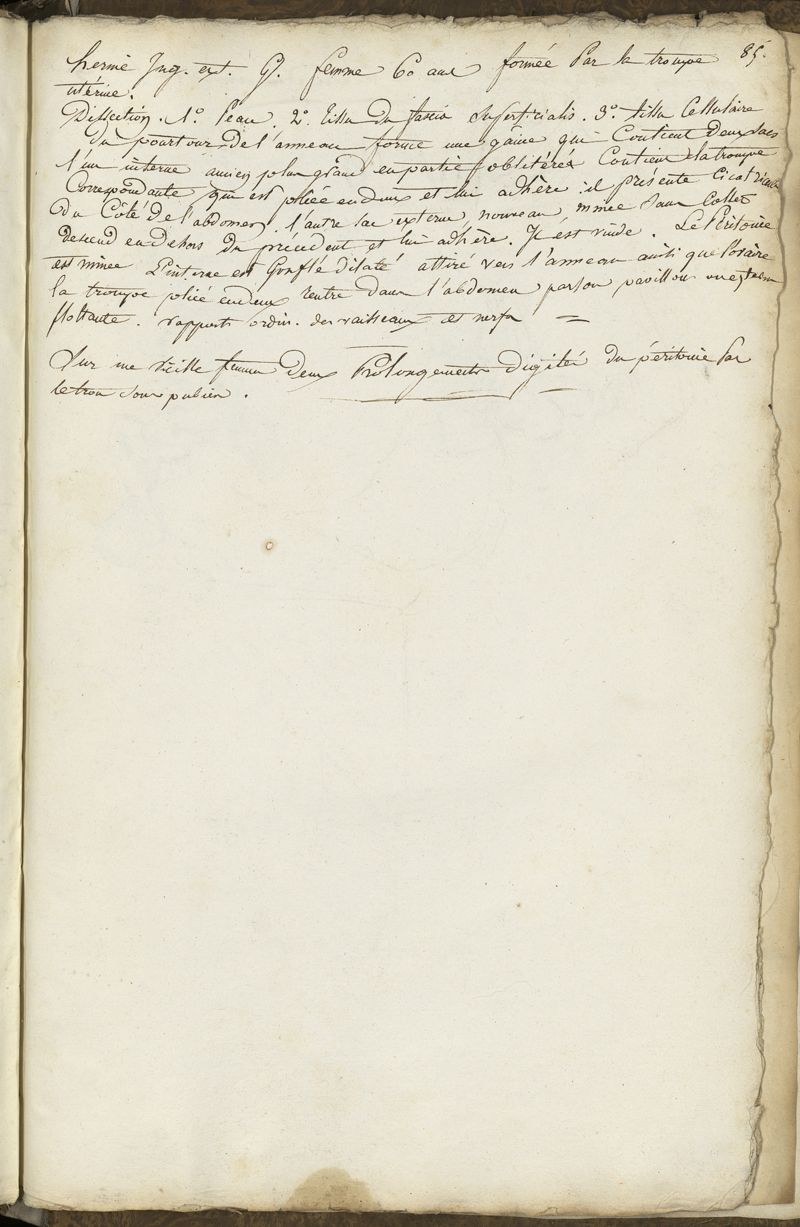 hernie Ing. ext. G. femme 60 ans formée par la trompe 85.
utérine.
Dissection. 1° Peau. 2° tissu du fascia superficialis. 3° tissu Cellulaire
du pourtour de l'anneau forme une gaine qui Contient deux sacs
l'un interne ancien plus grand en partie oblitéré Contient la trompe
Correspondante qui est pliée en deux et lui adhère. il présente Cicatrice
du Côté de l'abdomen, l'autre sac externe, nouveau, mince Sans Collet
descend en dehors du précédent et lui adhère. Il est vuide. Le Péritoine
est mince L'interne est Gonflé dilaté attiré vers l'anneau ainsi que l'ovaire
la trompe pliée en deux rentre dans l'abdomen par son pavillon
flottante. rapports ordin. des vaisseaux et nerfs
Sur une vieille femme deux Prolongements digités du péritoine Par
le trou sous pubien.